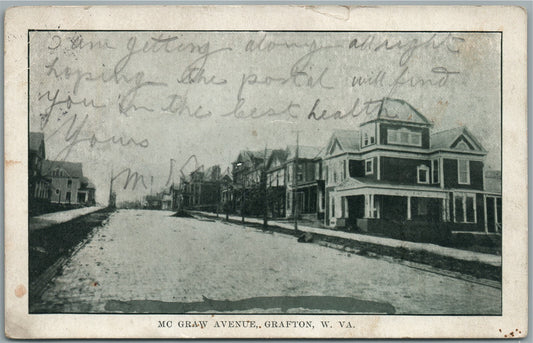 I am getting along allright
hoping the postal will find
you in the best health
Yours
M.
MC GRAW AVENUE, GRAFTON, W. VA.